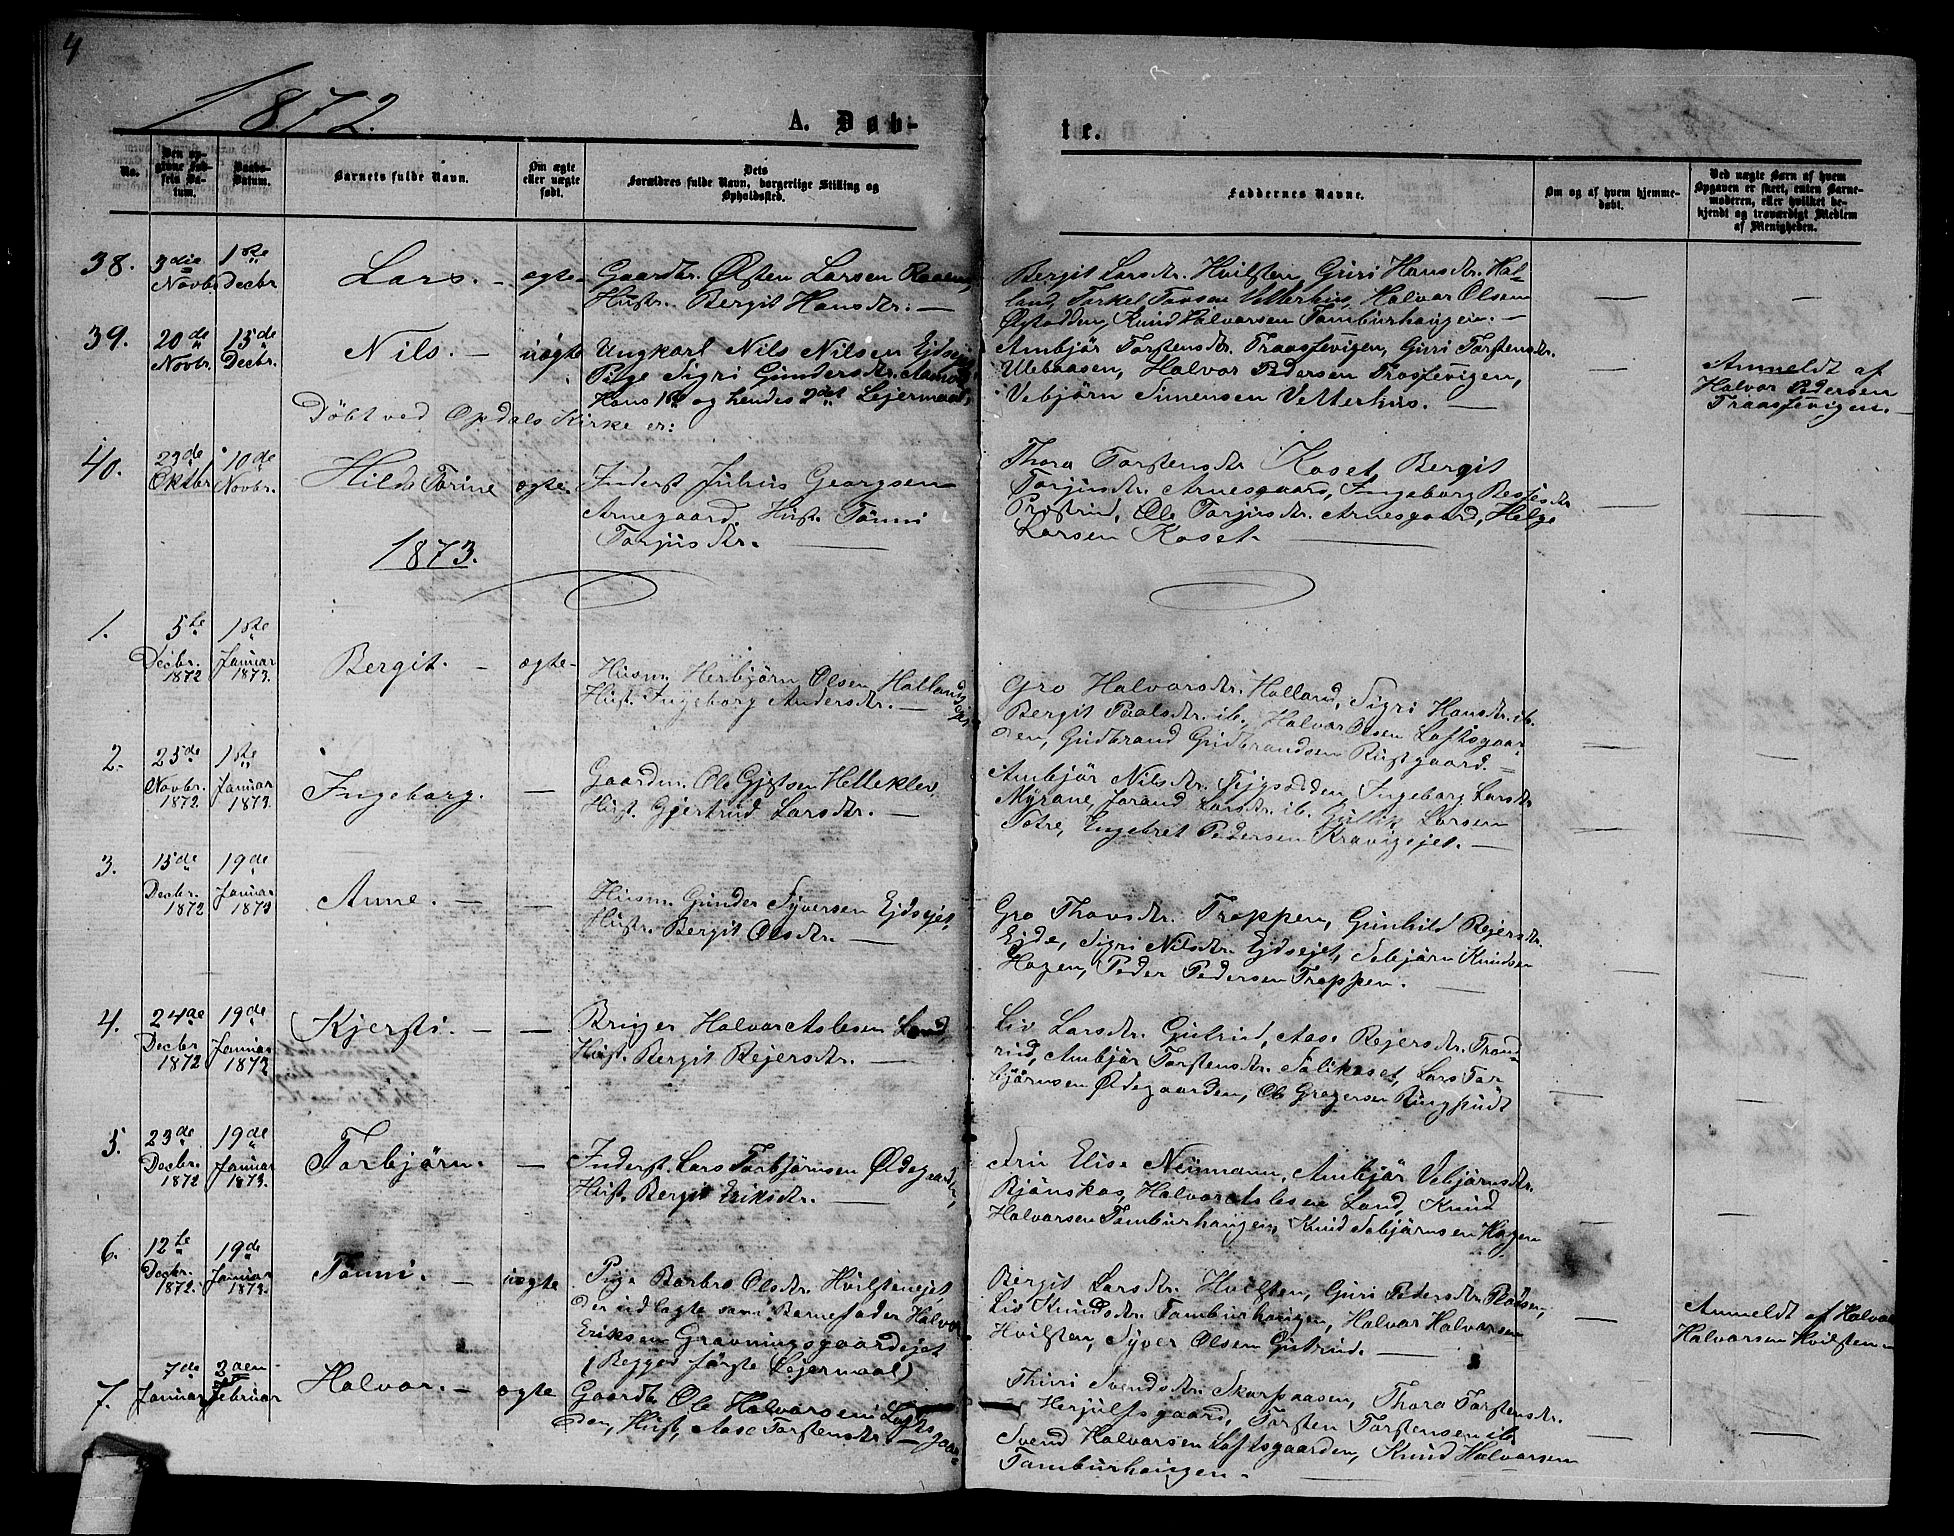 4
1872.
A. Døb-
te.
No.
Den opgivne Fødselsdatum.
Daabs-Datum.
Barnets fulde Navn.
Om ægte eller uægte født.
Dets Forældres fulde Navn, borgerlige Stilling og Opholdssted.
Faddernes Navne.
Om og af hvem hjemmedøbt.
Ved uægte Børn af hvem Opgaven er skeet, enten Barnemoderen, eller hvilket bekjendt og troværdigt Medlem af Menigheden.
38. 3die Novbr. 1ste Decbr. Lars. - ægte- Gaardbr. Østen Larsen Raaen,
Hustr. Bergit Hansdtr. -
Bergit Larsdtr. Hvilsten, Guri Hansdtr. Hal-
land, Torkel Tovsen Vetterhus, Halvor Olsen
Øystadden, Knud Halvorsen Tamburhaugen. -
39. 20de Novbr. 15de Decbr. Nils. - uægte Ungkarl Nils Nilsen Ejdsejet
Pige Sigri Gundersdtr.
Hans 1ste og hendes 2det Lejermaal,
Ambjör Torstensdtr. Traasfevigen, Guri Torstensdtr.
Ulebaasen, Halvor Pedersen Traasfevigen,
Vebjörn Simensen Vetterhus. -
Anmeldt af
Halvor Pedersen
Traasfevigen. -
Döbt ved Opdals Kirke er:
40. 29de Oktbr. 10de Novbr. Hilda Torine ægte. Inderst Julius Georgsen
Arnegaard, Hust. Tönni
Torjusdtr. -
Thora Torstensdtr. Koset, Bergit
Torjusdtr. Arnesgaard, Ingeborg Bessesdtr.
Prestrud, Ole Torjusdtr. Arnesgaard, Helge
Larsen Koset. -
1873.
1. 5te Decbr. 1872 1ste Januar 1873. Bergit. - ægte- Husm. Herbjörn Olsen Hallandsejet
Hust. Ingeborg Andersdtr. -
Gro Halvorsdtr. Halland, Sigri Hansdtr. ib.
Bergit Paalsdtr. ib., Halvor Olsen Loftsgaar-
den, Gudbrand Gudbrandsen Rustgaard. =
2. 25de Novbr. 1872. 1ste Januar 1873. Ingeborg. - Gaardm. Ole Gjestsen Helleklev,
Hust. Gjertrud Larsdtr. -
Ambjör Nilsdtr. Ingeborg Larsdtr.
Myrane, Jorand Larsdtr. ib. Gullik Larsen
Totre, Engebret Pedersen Kravigejet. -
3. 15de Decbr. 1872 19de Januar 1873 Anne. - - Husm. Gunder Syversen Ejdsejet,
Hustr. Bergit Olsdtr. -
Gro Thovsdtr. Troppen, Gunhild Rejersdtr.
Ejde, Sigri Nilsdtr. Ejdsejet, Sebjörn Knudsen
Hagen, Peder Pedersen Troppen. -
4. 24de Decbr. 1872 19de Januar 1873. Kjersti. - - Bruger Halvor Aslesen Land,
Hust. Bergit Rejersdtr. -
Liv Larsdtr. Gutrud, Aase Rejersdtr. Trond-
rud, Ambjör Torstensdtr. Lars Tor-
björnsen Ødegaarden, Ole Gregersen Ringsrudt
5. 23de Decbr. 1872 19de Januar 1873. Torbjörn. - Inderst. Lars Torbjörnsen Ødegaarden,
Hust. Bergit Eriksdtr. -
Elise Neumann, Ambjör Vebjörnsdtr.
Björnskas, Halvor Aslesen Land, Knud
Halvorsen Tamburhaugen, Knud Sebjörnsen Hagen
6. 12te Decbr. 1872. 19de Januar 1873. Tönni. - uægte Pige Barbro Olsdtr. Hvilstenejet,
der udlagte som Barnefader Halvor
Eriksen Gravningsgaardejet
(Begges förste Lejermaal)
Bergit Larsdtr. Hvilsten, Guri Pedersdtr. Raaen,
Liv Knudsdtr. Tamburhaugen, Halvor Halvorsen
Hvilsten, Syver Olsen Gutrud. -
Anmeldt af Halvor
Halvorsen Hvilsten -
7. 7de Januar 2den Februar Halvor. - ægte Gaardbr. Ole Halvorsen Loftsgaar-
den, Hust. Aase Torstensdtr. -
Thuri Svendsdtr. Skarpaasen, Thora Torstensdtr.
Herjulfsgaard, Torsten Torstensen ib.
Svend Halvorsen Loftsgaarden, Knud Halvorsen
Tamburhaugen -